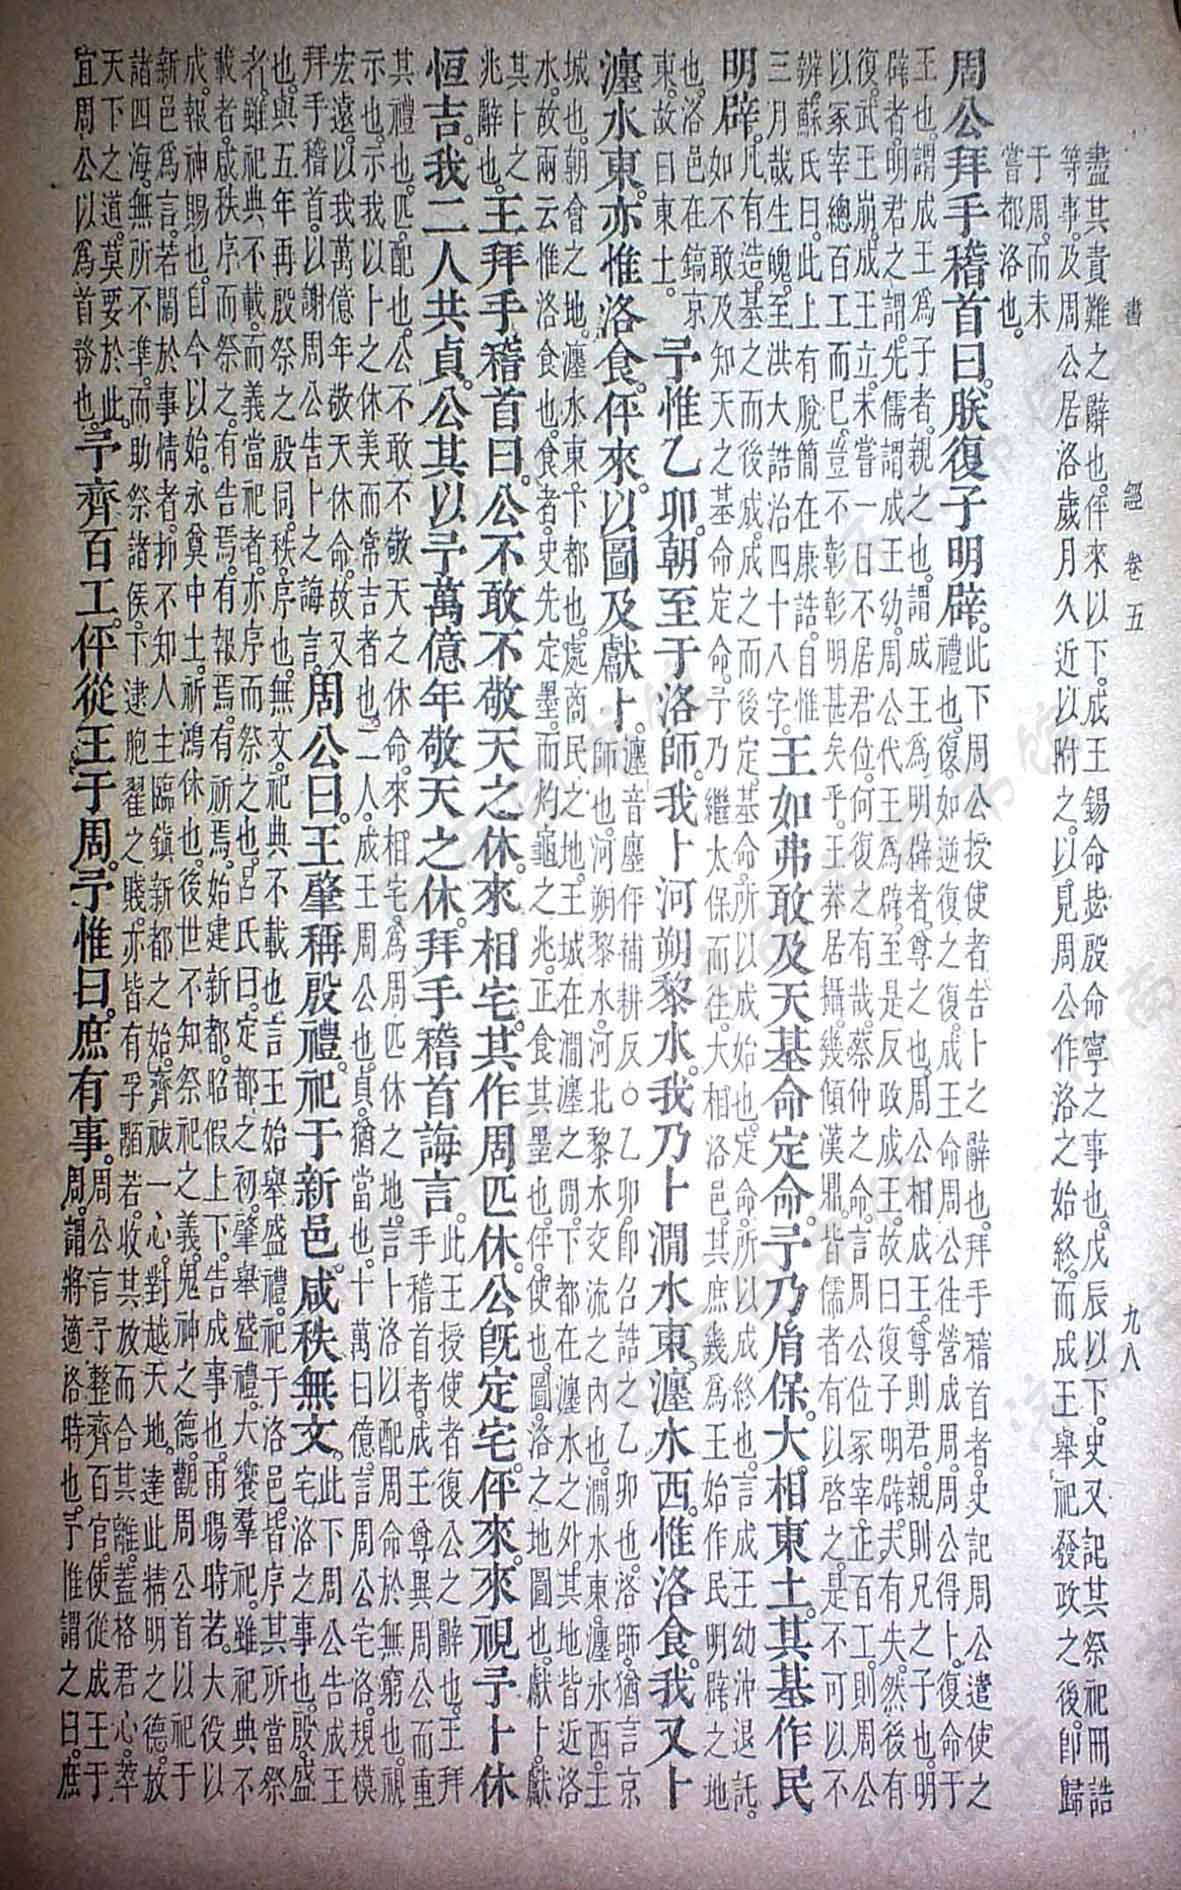 書經 卷五 九八
盡其責難之辭也。伻來以下。成王錫命毖殷命寧之事也。戊辰以下。史又記其祭祀冊誥
等事。及周公居洛歲月久近以附之。以見周公作洛之始終。而成王舉祀發政之後。卽歸
于周。而未
嘗都洛也。
周公拜手稽首曰。朕復子明辟。
此下周公授使者告卜之辭也。拜手稽首者。史記周公遣使之
禮也。復。如逆復之復。成王命周公往營成周。周公得卜。復命于
王也。謂成王爲子者。親之也。謂成王爲明辟者。尊之也。周公相成王。尊則君。親則兄之子也。明
辟者。明君之謂。先儒謂成王幼。周公代王爲辟。至是反政成王。故曰復子明辟。夫有失。然後有
復。武王崩。成王立。未嘗一日不居君位。何復之有哉。蔡仲之命言。周公位冢宰。正百工。則周公
以冢宰總百工而已。豈不彰彰明甚矣乎。王莽居攝。幾傾漢鼎。皆儒者有以啓之。是不可以不
辨。蘇氏曰。此上有脫簡在康誥。自惟
三月哉生魄。至洪大誥治四十八字。
王如弗敢及天基命定命。予乃胤保。大相東土。其基作民
明辟。
凡有造。基之而後成。成之而後定。基命。所以成始也。定命。所以成終也。言成王幼沖退託。
如不敢及知天之基命定命。予乃繼太保而往。大相洛邑。其庶幾爲王始作民明辟之地
也。洛邑在鎬京
東。故曰東土。
予惟乙卯。朝至于洛師。我卜河朔黎水。我乃卜澗水東。瀍水西。惟洛食。我又卜
瀍水東。亦惟洛食。伻來。以圖及獻卜。
瀍音廛伻補耕反。○乙卯卽召誥之乙卯也。洛師。猶言京
師也。河朔黎水。河北黎水交流之內也。澗水東。瀍水西。王
城也。朝會之地。瀍水東。下都也。處商民之地。王城在澗瀍之閒。下都在瀍水之外。其地皆近洛
水。故兩云惟洛食也。食者。史先定墨。而灼龜之兆。正食其墨也。伻。使也。圖。洛之地圖也。獻卜。獻
其卜之
兆辭也。
王拜手稽首曰。公不敢不敬天之休。來相宅。其作周匹休。公旣定宅。伻來來視予卜休
恒吉。我二人共貞。公其以予萬億年敬天之休。拜手稽首誨言。
此王授使者復公之辭也。王拜
手稽首者。成王尊異周公而重
其禮也。匹。配也。公不敢不敬天之休命。來相宅。爲周匹休之地。言卜洛以配周命於無窮也。視
示也。示我以卜之休美而常吉者也。二人。成王周公也。貞。猶當也。十萬曰億。言周公宅洛。規模
宏遠。以我萬億年敬天休命。故又
拜手稽首。以謝周公告卜之誨言。
周公曰。王肇稱殷禮。祀于新邑。咸秩無文。
此下周公告成王
宅洛之事也。殷盛
也。與五年再殷祭之殷同。秩。序也。無文。祀典不載也。言王始舉盛禮。祀于洛邑。皆序其所當祭
者。雖祀典不載。而義當祀者。亦序而祭之也。呂氏曰。定都之初。肇舉盛禮。大饗羣祀。雖祀典不
載者。咸秩序而祭之。有告焉。有報焉。有祈焉。始建新都。昭假上下。告成事也。雨暘時若。大役以
成。報神賜也。自今以始。永奠中土。祈鴻休也。後世不知祭祀之義。鬼神之德。觀周公首以祀于
新邑爲言。若闊於事情者。抑不知人主臨鎮新都之始。齊祓一心。對越天地。達此精明之德。放
諸四海。無所不準。而助祭諸侯。下逮胞翟之賤。亦皆有孚顒若。收其放而合其離。蓋格君心。萃
天下之道。莫要於此。
宜周公以爲首務也。
予齊百工。伻從王于周。予惟曰。庶有事。
周公言予整齊百官。使從成王于
周。謂將適洛時也。予惟謂之曰。庶